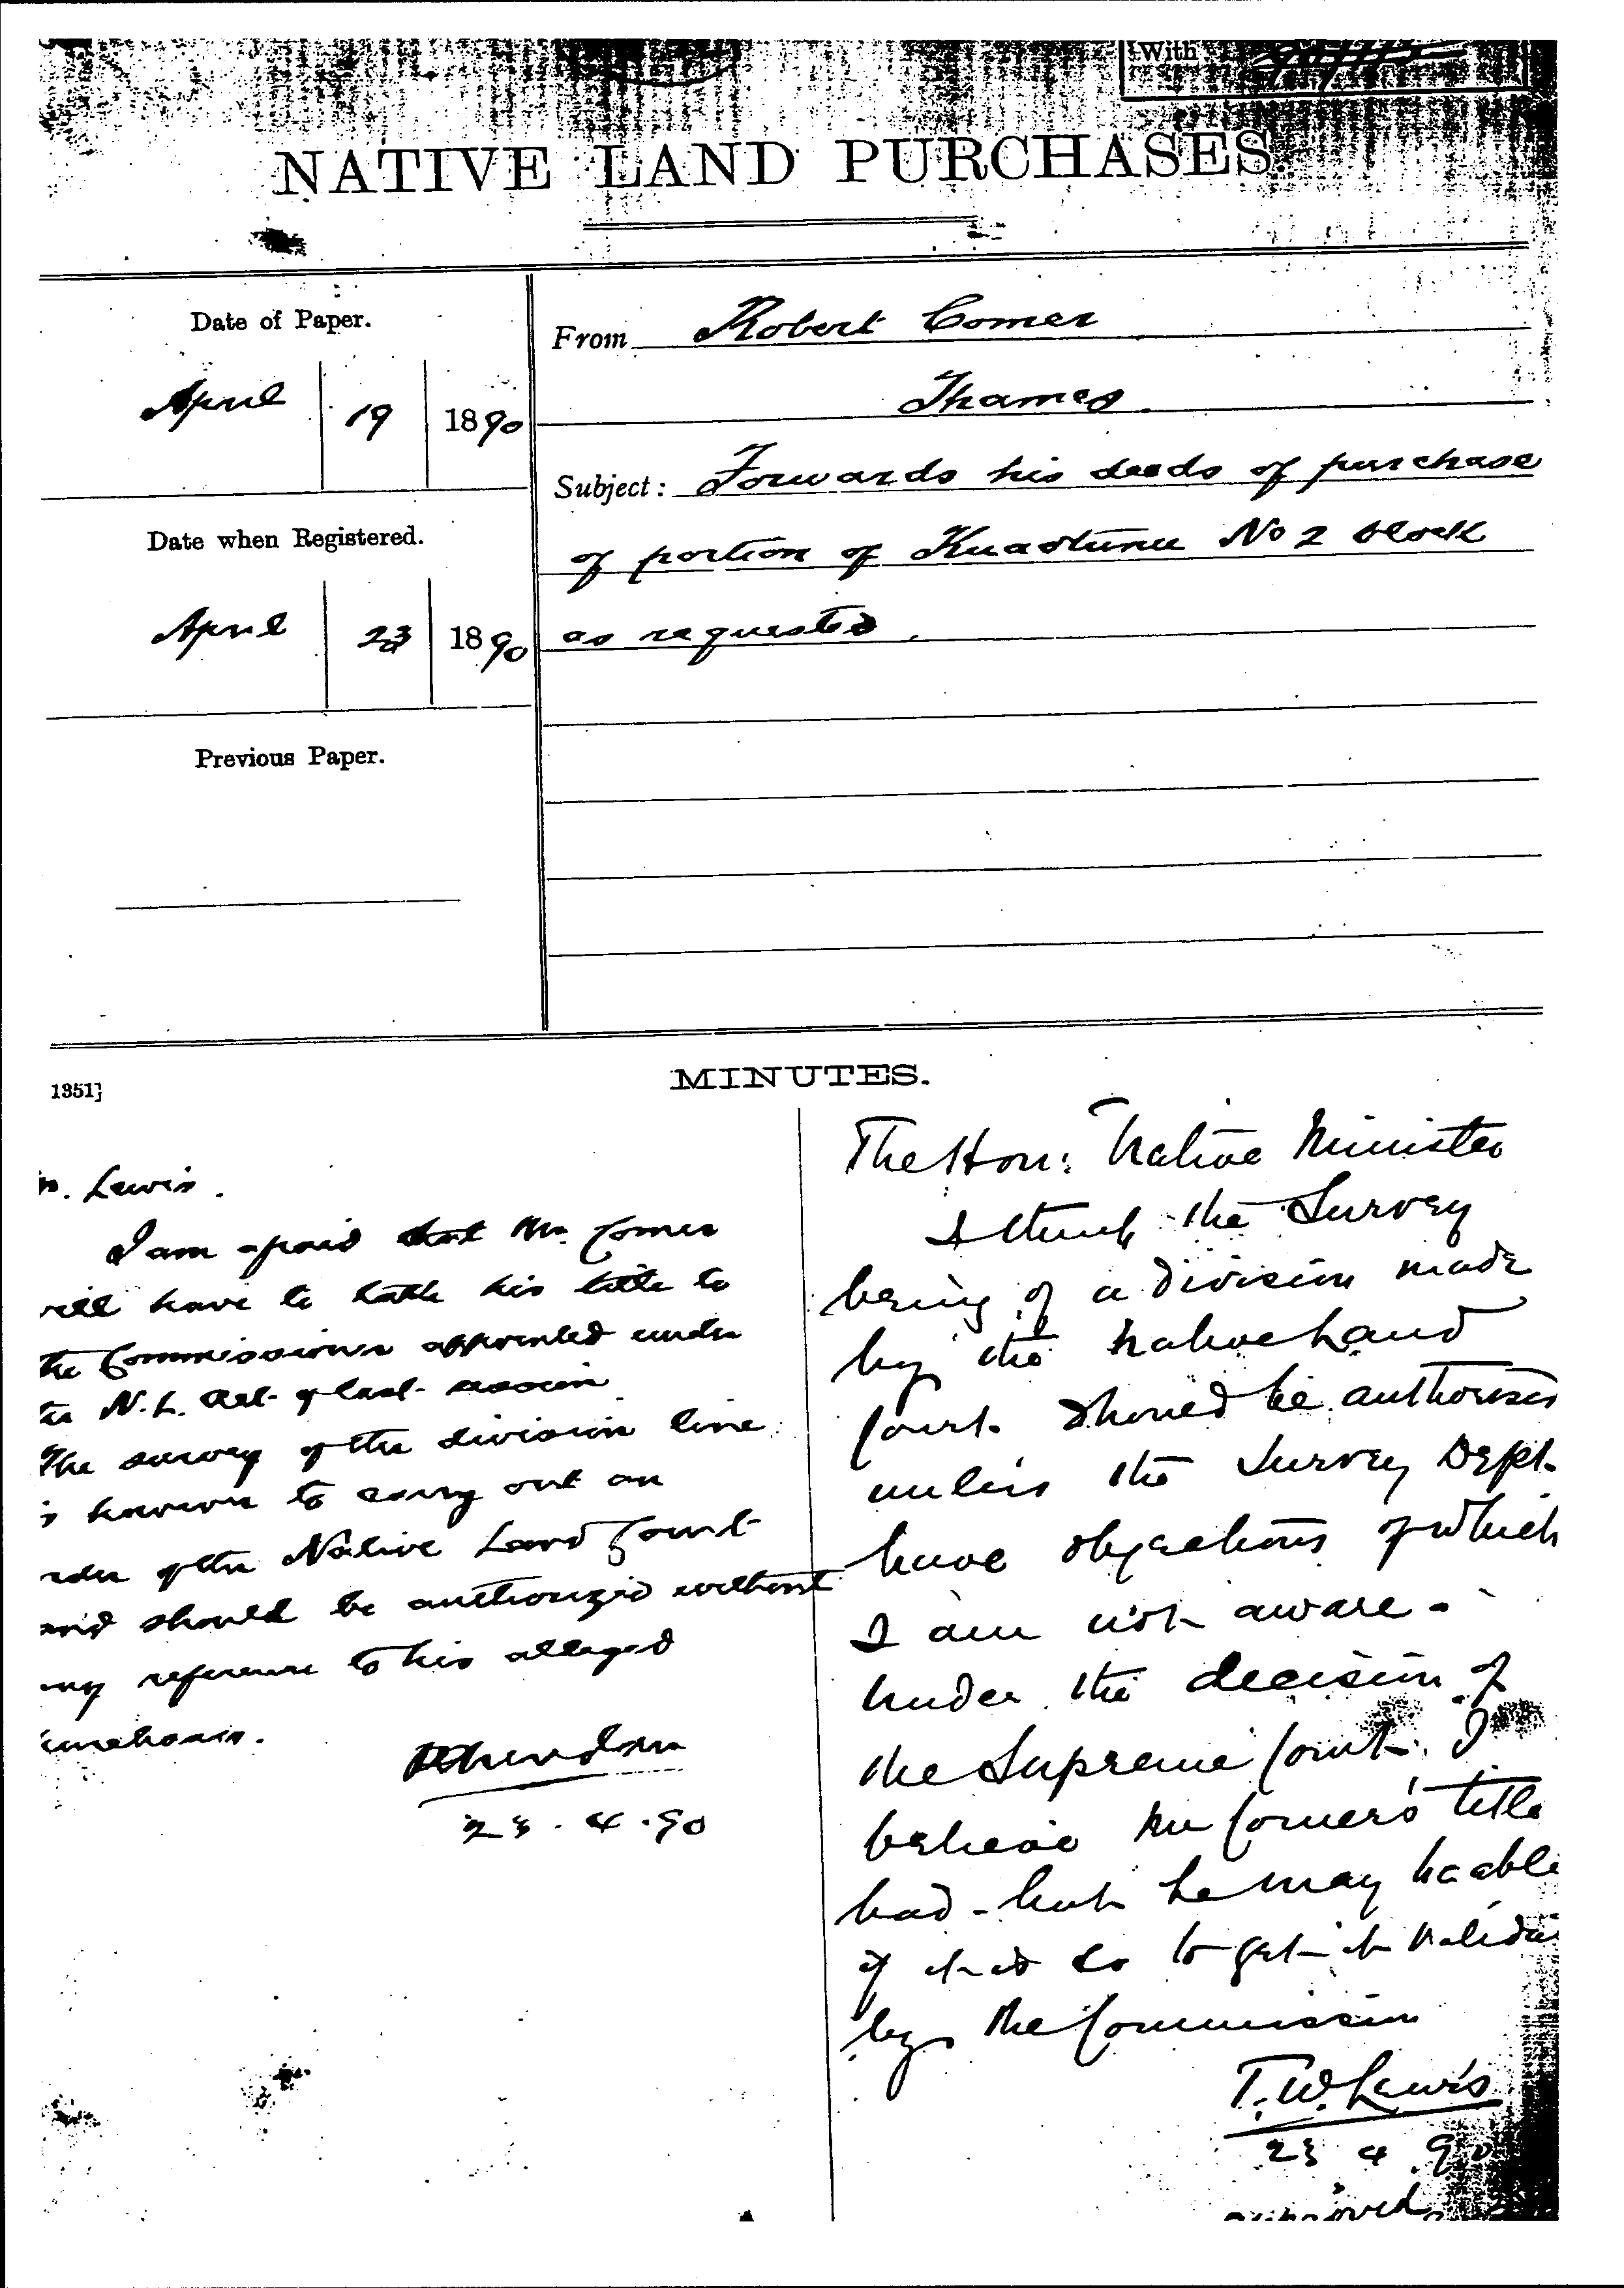 With
NATIVE LAND PURCHASES.
Date of Paper.
April 19 1890
Date when Registered.
April 23 1890
Previous Paper.
From Robert Comer
Thames.
Subject: Forwards his deeds of purchase
of portion of Kuaotunu No 2 block
as requested.
1351]
MINUTES.
Lewis.
I am afraid that Mr. Comer
will have to his title to
the Commissioners appointed under
the N.L. Act of last session
The survey of the division line
is however to carry out an
of the Native Land Court
and should be authorized without
any reference to his alleged
23.4.90
The Hon: Native Minister
I think the Survey
being of a division made
by the Native Land
Court should be authorised
unless the Survey Dept.
have objections of which
I am not aware -
Under the decision of
the Supreme Court, I
believe Mr Comer's title
bad - but he may be able
if it is so to get it
by the Commission
T.W. Lewis
23 4.90
approved